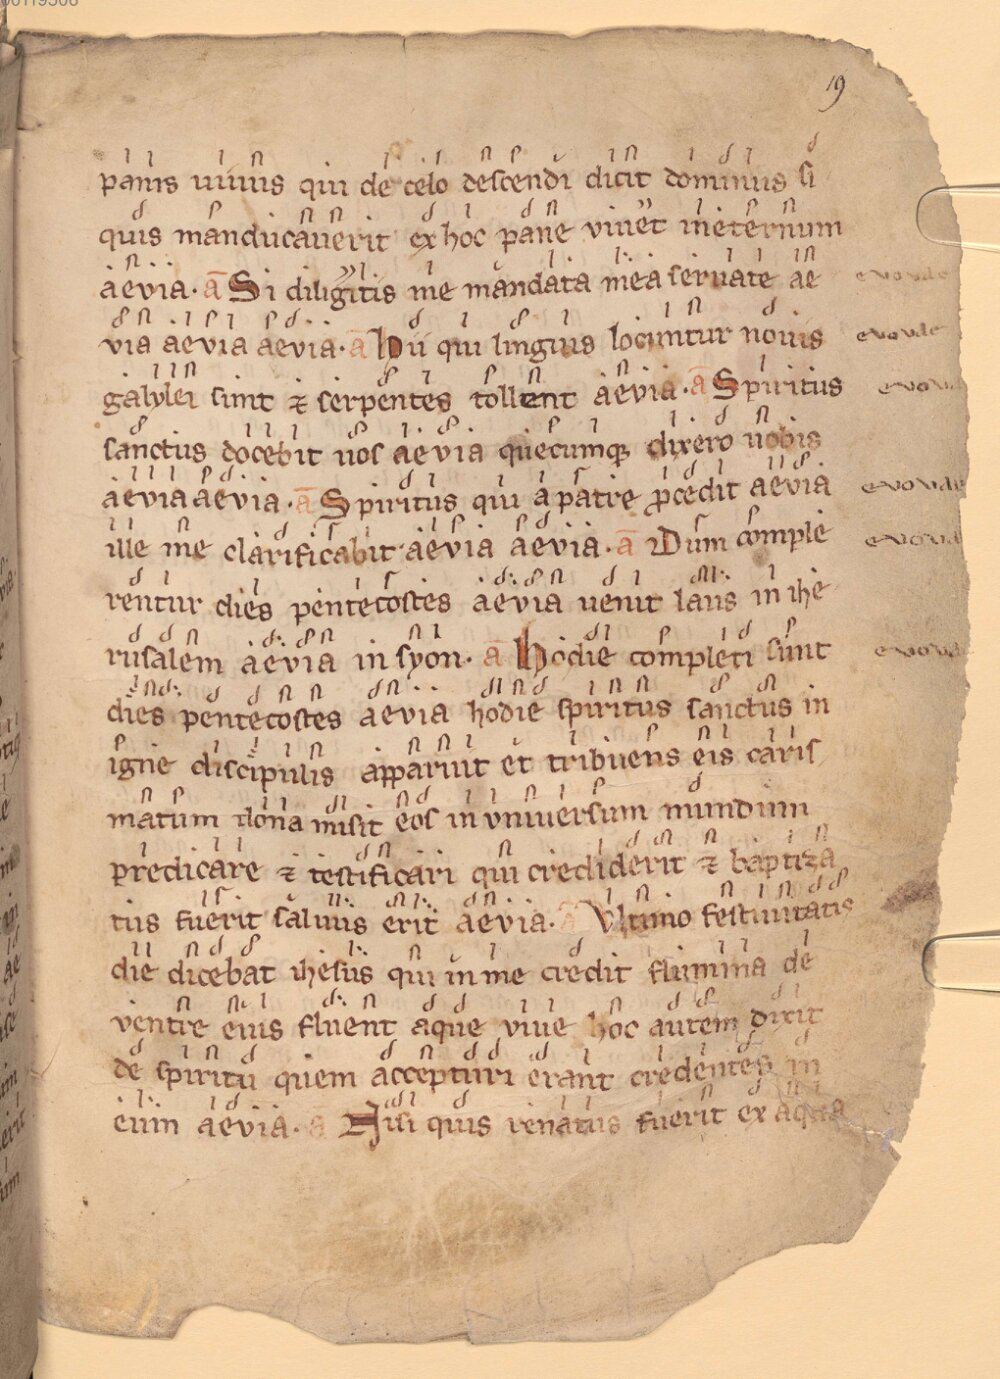 19
panis uiuus qui de celo descendi dicit dominus si
quis manducauerit ex hoc pane viuet in eternum
aevia. ā Si diligitis me mandata mea seruate ae
evovae
via aevia aevia. ā Hii qui linguis locuntur nouis
evovae
galylei sunt ⁊ serpentes tollent aevia. ā Spiritus
evov
sanctus docebit uos aevia quecumqꝫ dixero uobis
aevia aevia. ā Spiritus qui a patre ꝓcedit aevia
evovae
ille me clarificabit aevia aevia. ā Dum comple
evova
rentur dies pentecostes aevia uenit laus in ihe
rusalem aevia in syon. ā Hodie completi sunt
evova
dies pentecostes aevia hodie spiritus sanctus in
igne discipulis apparuit et tribuens eis caris
matum dona misit eos in vniuersum mundum
predicare ⁊ testificari qui crediderit ⁊ baptiza
tus fuerit saluus erit aevia. ā Vltimo festiuitatis
die dicebat ihesus qui in me credit flumina de
ventre eius fluent aque viue hoc autem dixit
de spiritu quem accepturi erant credentes in
eum aevia. a Nisi quis renatus fuerit ex aqua